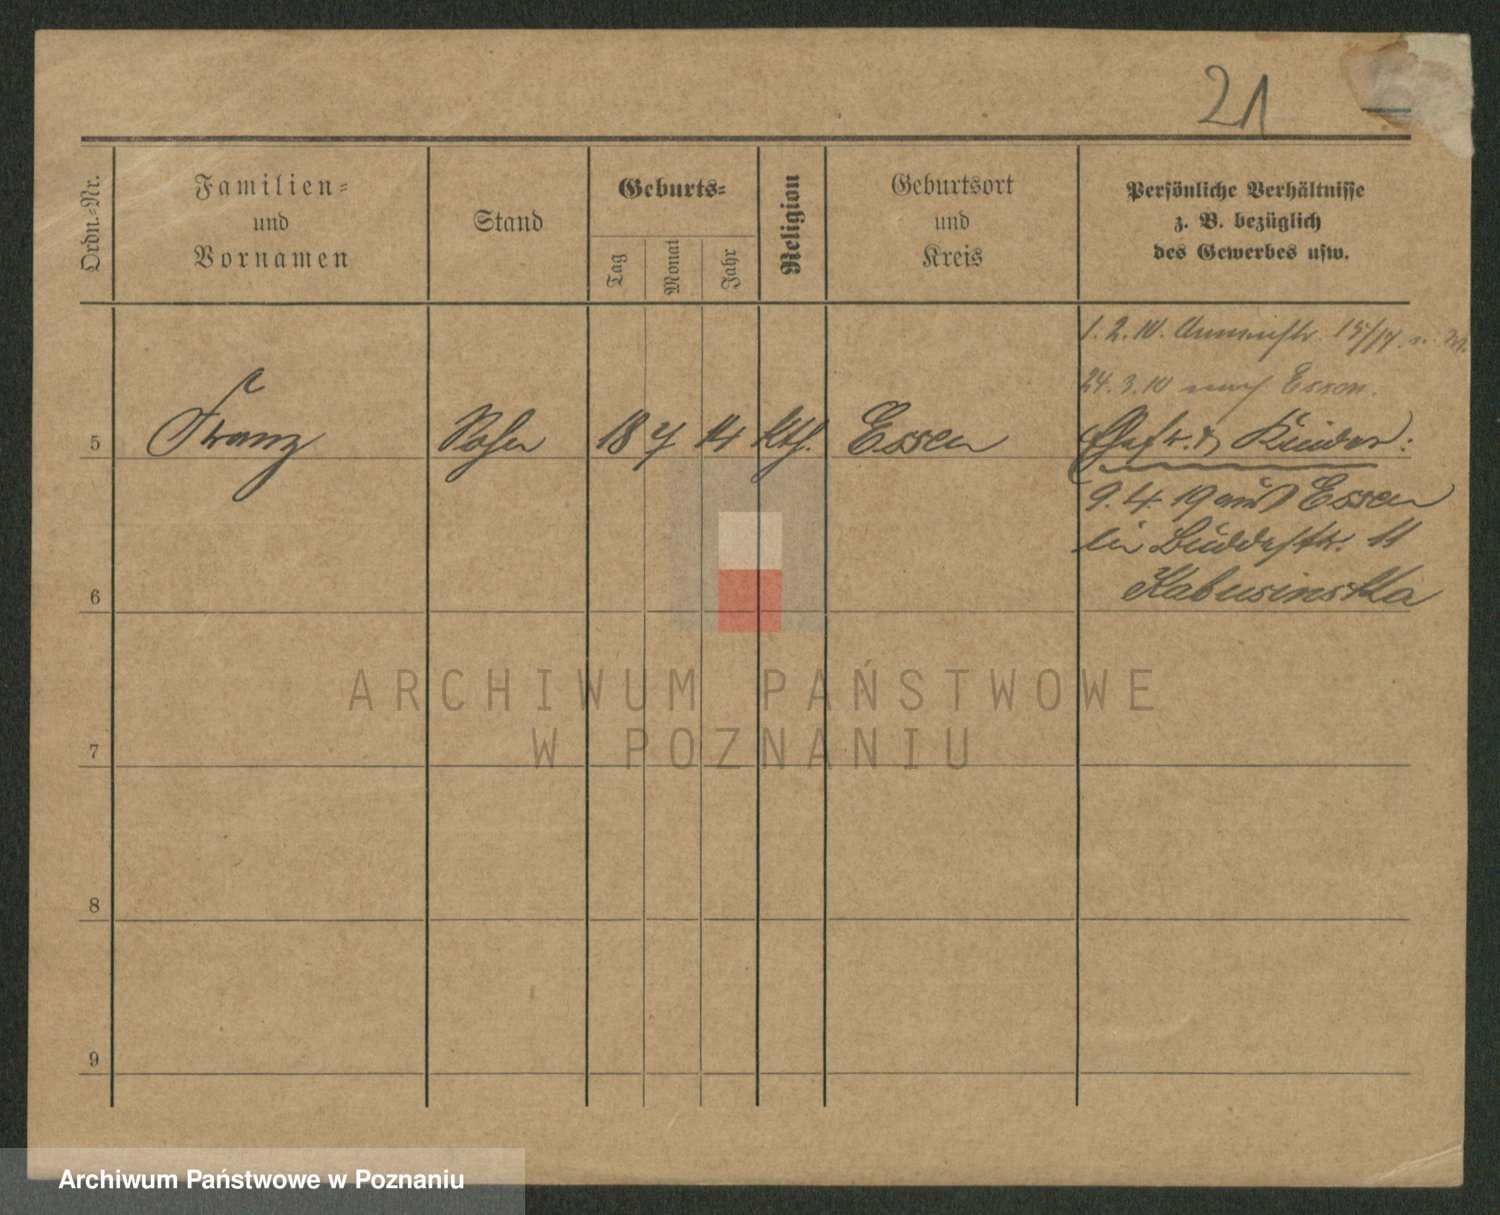 21
Ordn.-Nr.
Familien-
und
Vornamen
Stand
Geburts-
Tag
Monat
Jahr
Religion
Geburtsort
und
Kreis
Persönliche Verhältnisse
z. B. bezüglich
des Gewerbes usw.
1. 2. 10. 15/17
24. 3. 10 nach Essen.
5 Franz Sohn 18 7 14 kth. Essen Ehefr. & Kinder:
9. 4. 19 aus Essen
bei Buddestr. 11
6 Kabusinska
7
8
9
ARCHIWUM PAŃSTWOWE
W POZNANIU
Archiwum Państwowe w Poznaniu